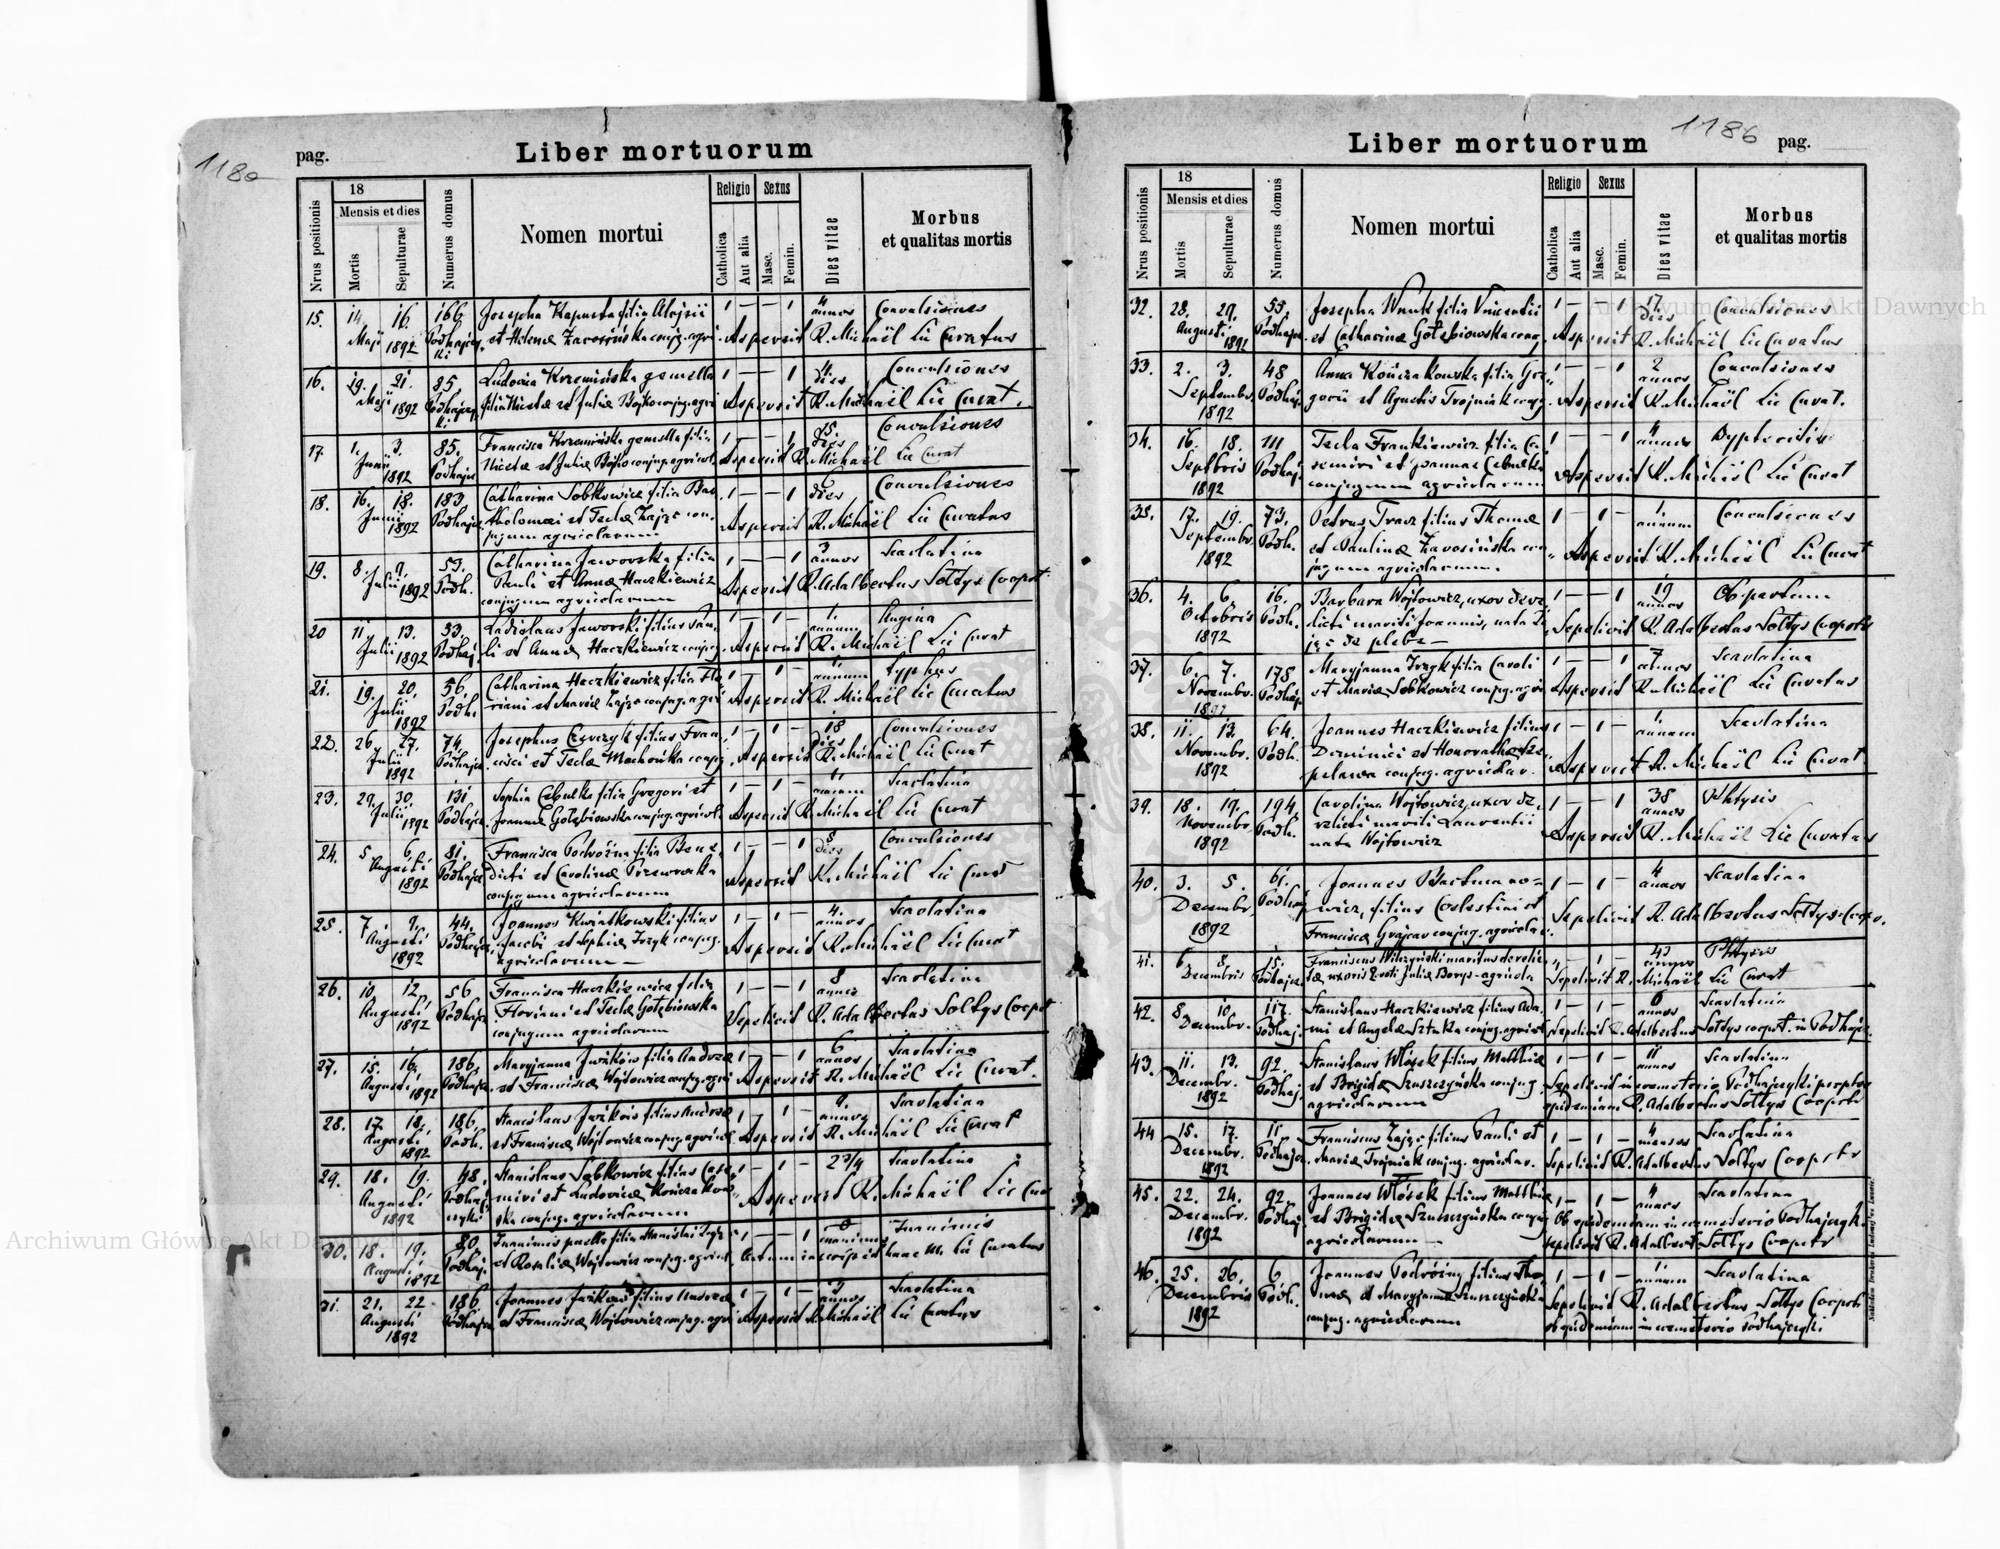 1180
pag.
Liber mortuorum
Nrus positionis
18
Mensis et dies
Mortis
Sepulturae
Numerus domus
Nomen mortui
Religio
Catholica
Aut alia
Sexus
Masc.
Femin.
Dies vitae
Morbus
et qualitas mortis
15. 14. 16. 166 Josepha Kapusta filia Alojsii 1 — — 1 4 annos Convulsiones
Maji 1892 et Helenæ conjug. agri. Aspersit R. Michaël Lic Curatus
16. 19. 21. 85. Ludovica Krzemińska gemella 1 — — 1 dies Convulsiones
Maji 1892 filia Nicetæ et Juliæ Bojko conjug. agri Aspersit R. Michaël Lic Curat.
17. 1. 3. 85. Francisca Krzemińska gemella filia 1 — — 1 15. dies Convulsiones
Junii 1892 Nicetæ et Juliæ Bojko conjug. agricol. Aspersit R. Michaël Lic Curat
18. 16. 18. 183. Catharina Sobkowicz filia Bar 1 — — 1 dies Convulsiones
Junii 1892 tholomæi et Teclæ Zając con. Aspersit R. Michaël Lic Curatus
jugum agricolarum
19. 8. 9. 53. Catharina Jaworska filia 1 — — 1 3 annos Scarlatina
Julii 1892 Podh. Pauli et Annæ Haczkiewicz Aspersit R. Adalbertus Sołtys Coopert.
conjugum agricolarum
20 11. 13. 53. Ladislaus Jaworski filius Pau. 1 — 1 — 1. annum Angina
Julii 1892 Podhaj. li et Annæ Haczkiewicz conjug. Aspersit R. Michaël Lic Curat
21. 19. 20. 56. Catharina Haczkiewicz filia Flo annum typhus
Julii 1892 Podh. riani et Mariæ Zając conjug. agri Aspersit R. Michaël Lic Curatus
22. 26. 27. 74. Josephus filius Fran. 1 — 1 — 18 dies Convulsiones
Julii 1892 Podhajce cisci et Teclæ Machowska conjug. Aspersit R. Michaël Lic Curat
23. 29. 30. 131 Sophia Cebulka filia Gregorii et annum Scarlatina
Julii 1892 Podhajce Joannæ Gołębiowska conjug. agricol. Aspersit R. Michaël Lic Curat
24. 5 6. 81. Francisca Podróżna filia Bene. 1 — — 1 8 dies Convulsiones
Augusti 1892 Podhajce dicti et Carolinæ Przeworska Aspersit R. Michaël Lic
conjugum agricolarum
25. 7. 9. 44. Joannes Kwiatkowski filius 1 — 1 — 4. annos Scarlatina
Augusti 1892 Podhajce Jacobi et Sophiæ conjug. Aspersit R. Michaël Lic Curat
agricolarum —
26. 10. 12. 56 Francisca Haczkiewicz filia 1 — — 1 8 annos Scarlatina
Augusti 1892 Podhajce Floriani et Teclæ Gołębiowska Sepelivit R. Adalbertus Sołtys Coopert
conjugum agricolarum
27. 15. 16. 186. Maryjanna filia Andreæ 1 — — 1 6 annos Scarlatina
Augusti 1892 Podhajce et Franciscæ Wójtowicz conjug. agri Aspersit R. Michaël Lic Curat.
28. 17. 18. 186. Stanislaus filius Andreæ 1 — 1 — 4. annos Scarlatina
Augusti 1892 Podh. et Franciscæ Wójtowicz conjug. agricol Aspersit R. Michaël Lic Curat
29. 18. 19. 48. Stanislaus filius Casi 1 — 1 — 2 3/4 Scarlatina
Augusti 1892 miri et Ludovicæ Kończakow Aspersit R. Michaël Lic Cur
ska conjug. agricolarum
30. 18. 19. 80. Inanimis puella filia Stanislai 0 Inanimis
Augusti 1892 Podhaj. et Rosaliæ Wójtowicz conjug. agricol. Actum inscripsit hunc M. Lic Curatus
31. 21. 22 186 Joannes filius Andreæ 1 — 1 — 3 annos Scarlatina
Augusti 1892 Podhajce et Franciscæ Wójtowicz conjug. agri Aspersit R. Michaël Lic Curatus
Liber mortuorum
1186
pag.
Nrus positionis
18
Mensis et dies
Mortis
Sepulturae
Numerus domus
Nomen mortui
Religio
Catholica
Aut alia
Sexus
Masc.
Femin.
Dies vitae
Morbus
et qualitas mortis
32. 28. 29. 55. Josepha Wnuk filia Vincentii 1 — — 1 17 dies Convulsiones
Augusti 1892 Podhajce et Catharinæ Gołębiowska conj. Aspersit R. Michaël Lic Curatus
33. 2. 3. 48 Anna Kończakowska filia Gre 1 — — 1 2 annos Convulsiones
Septembr. 1892 Podhaj. gorii et Agnetis Trojniak conjug. Aspersit R. Michaël Lic Curat.
34. 16. 18. 111 Tecla Frankiewicz filia Ca 1 — — 1 4 annos Dypteritis
Septbris 1892 Podhaj. semiri et Joannæ Cebulka Aspersit R. Michaël Lic Curat
conjugum agricolarum
35. 17. 19. 73. Petrus Tracz filius Thomæ 1 — 1 — 1. annum Convulsiones
Septembr. 1892 Podh. et Paulinæ con Aspersit R. Michaël Lic Curat
jugum agricolarum
36. 4. 6. 16. Barbara Wójtowicz, uxor dere 1 — — 1 19 annos Ob partum
Octobris 1892 Podh. licti mariti Joannis, nata Za Sepelivit R. Adalbertus Sołtys Cooperts
jąc de plebe —
37. 6. 7. 178 Maryjanna filia Caroli 1 — — 1 7 annos Scarlatina
Novembr. 1892 Podhaj. et Mariæ Sobkowicz conjug. agri Aspersit R. Michaël Lic Curatus
38. 11. 13. 64. Joannes Haczkiewicz filius 1 — 1 — 1. annum Scarlatina
Novembr. 1892 Podh. Dominici et Honorathæ Sze Aspersit R. Michaël Lic Curat
pelawa conjug. agricolar.
39. 18. 19. 194. Carolina Wójtowicz, uxor de 1 — — 1 38 annos Phtysis
Novembr. 1892 Podh. relicti mariti Laurentii Aspersit R. Michaël Lic Curatus
nata Wójtowicz
40. 3. 5. 61. Joannes 1 — 1 — 4 annos Scarlatina
Decembr. 1892 Podhaj wicz, filius Coelestini et Sepelivit R. Adalbertus Sołtys Coop.
Franciscæ Grajcar conjug. agricolar.
41. 6. 8. 15. Franciscus Wilczyński maritus derelic 43 annos Phtysis
Decembris Podhajce tæ uxoris Juliæ Borys - agricola Sepelivit R. Michaël Lic Curat
42. 8 10. 117. Stanislaus Haczkiewicz filius Ada 1 — 1 — 6 annos Scarlatina
Decembr. Podhaj. mi et Angelæ Sztuka conjug. agricol Sepelivit R. Adalbertus Sołtys coopert. in Podhajce
43. 11. 13. 92. Stanislaus Włosek filius Matthiæ 1 — 1 — 11 annos Scarlatina
Decembr. 1892 Podhaj. et Brigidæ Szuszczyńska conjug. Sepelivit in coemeterio Podhajcyki propter
agricolarum epidemiam R. Adalbertus Sołtys Cooperts
44 15. 17. 11. Franciscus Zając filius Pauli et 1 — 1 — 4 menses Scarlatina
Decembr. 1892 Podhajce Mariæ Trojniak conjug. agricolar. Sepelivit R. Adalbertus Sołtys Cooperts
45. 22. 24. 92. Joannes Włosek filius Matthiæ 1 — 1 — 4 annos Scarlatina
Decembr. 1892 Podhaj et Brigidæ Szuszczyńska conjug Ob epidemiam in coemeterio Podhajcyki
agricolarum — sepelivit R. Adalbert Sołtys Cooperts
46. 25. 26. 6. Joannes Podróżny filius Tho 1 — 1 — 1. annum Scarlatina
Decembris 1892 Podh. mæ et Maryjannæ Szuszczyńska Sepelivit R. Adalbertus Sołtys Cooperts
conjug. agricolarum ob epidemiam in coemeterio Podhajcyki
Archiwum Główne Akt Dawnych
Archiwum Główne Akt Dawnych